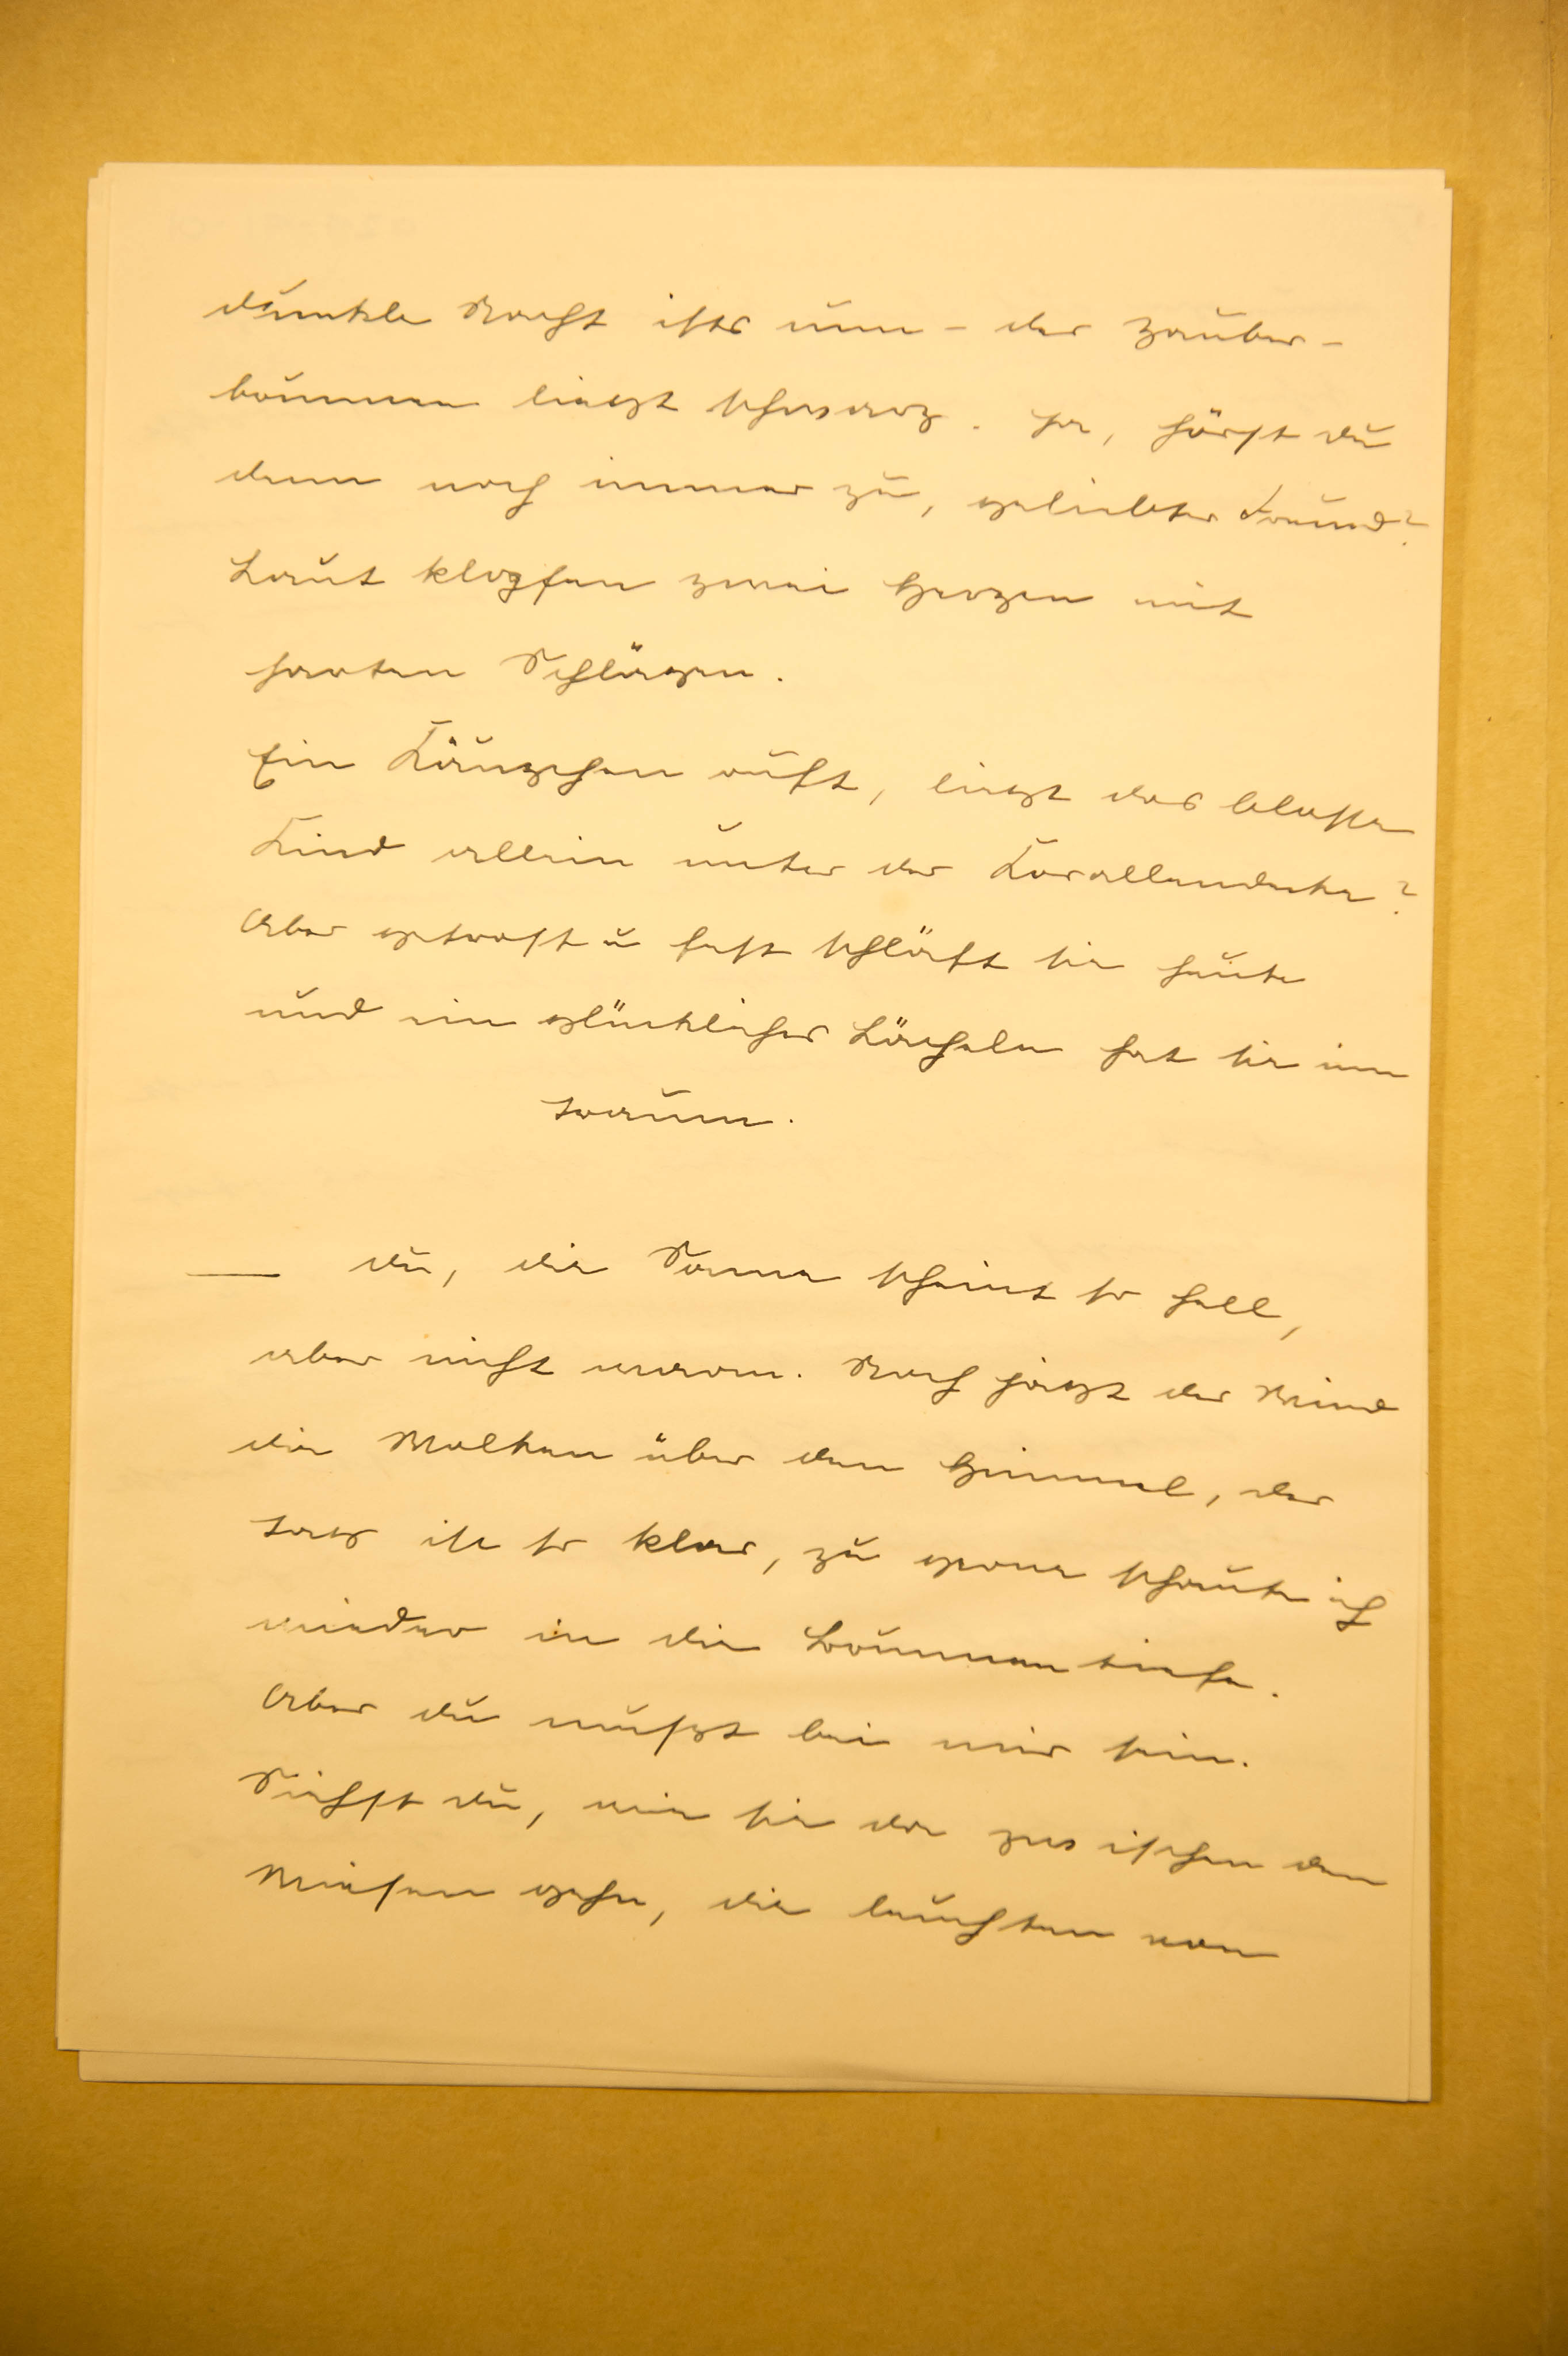 dunkle Nacht ists nun – der Zauber-
brunnen liegt schwarz. Ja, hörst du
denn noch immer zu, geliebter Freund?
Laut klopfen zwei Herzen mit
harten Schlägen.
Ein Käuzchen ruft, liegt das blasse
Kind allein unter der Korallendecke?
Aber getrost u fest schläft sie heute
und ein glückliches Lächeln hat sie im
traum.
— du, die Sonne scheint so hell,
aber nicht warm. Noch jagt der Wind
die Wolken über den Himmel, der
tag ist so klar, zu gerne schaute ich
wieder in die Brunnentiefe.
Aber du mußt bei mir sein.
Siehst du, wie sie da zwischen den
Wiesen gehn, die leuchten von